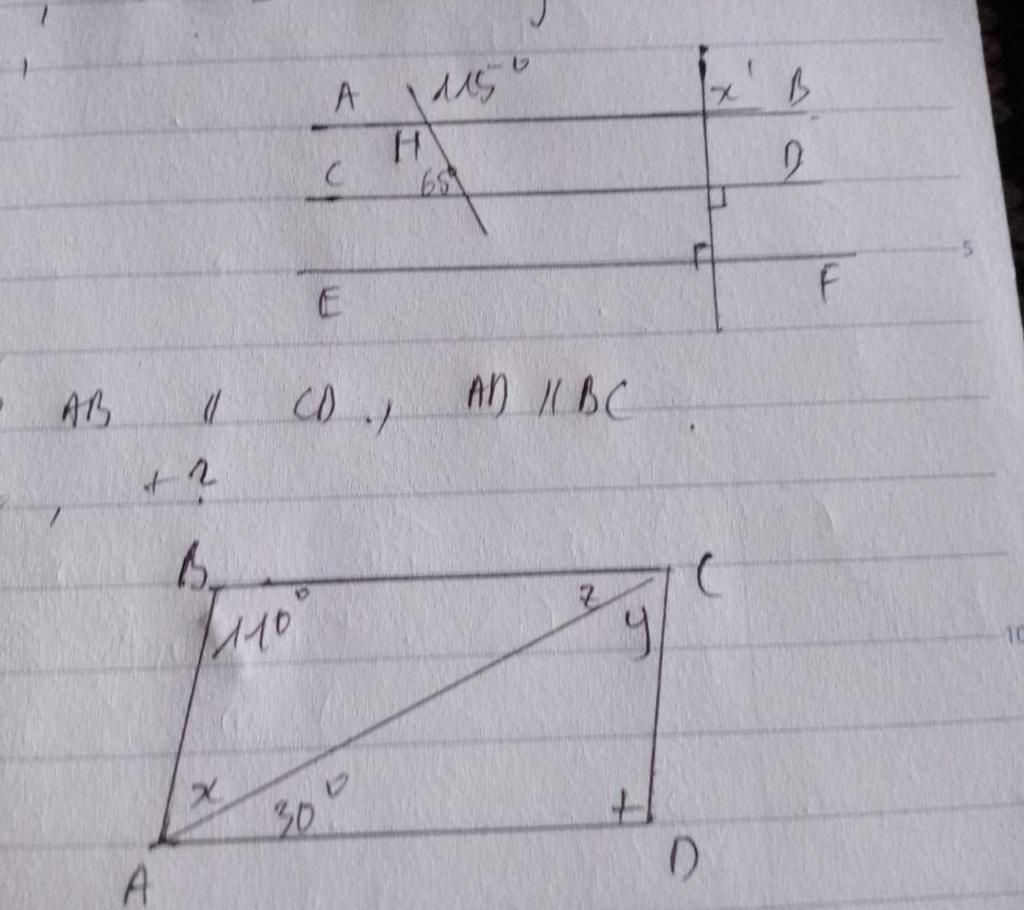 A 115° x' B
H
C 65° D
E F
5
AB // CD ., AD // BC .
, + ?
B C
110° z y
10
x 30° +
A D